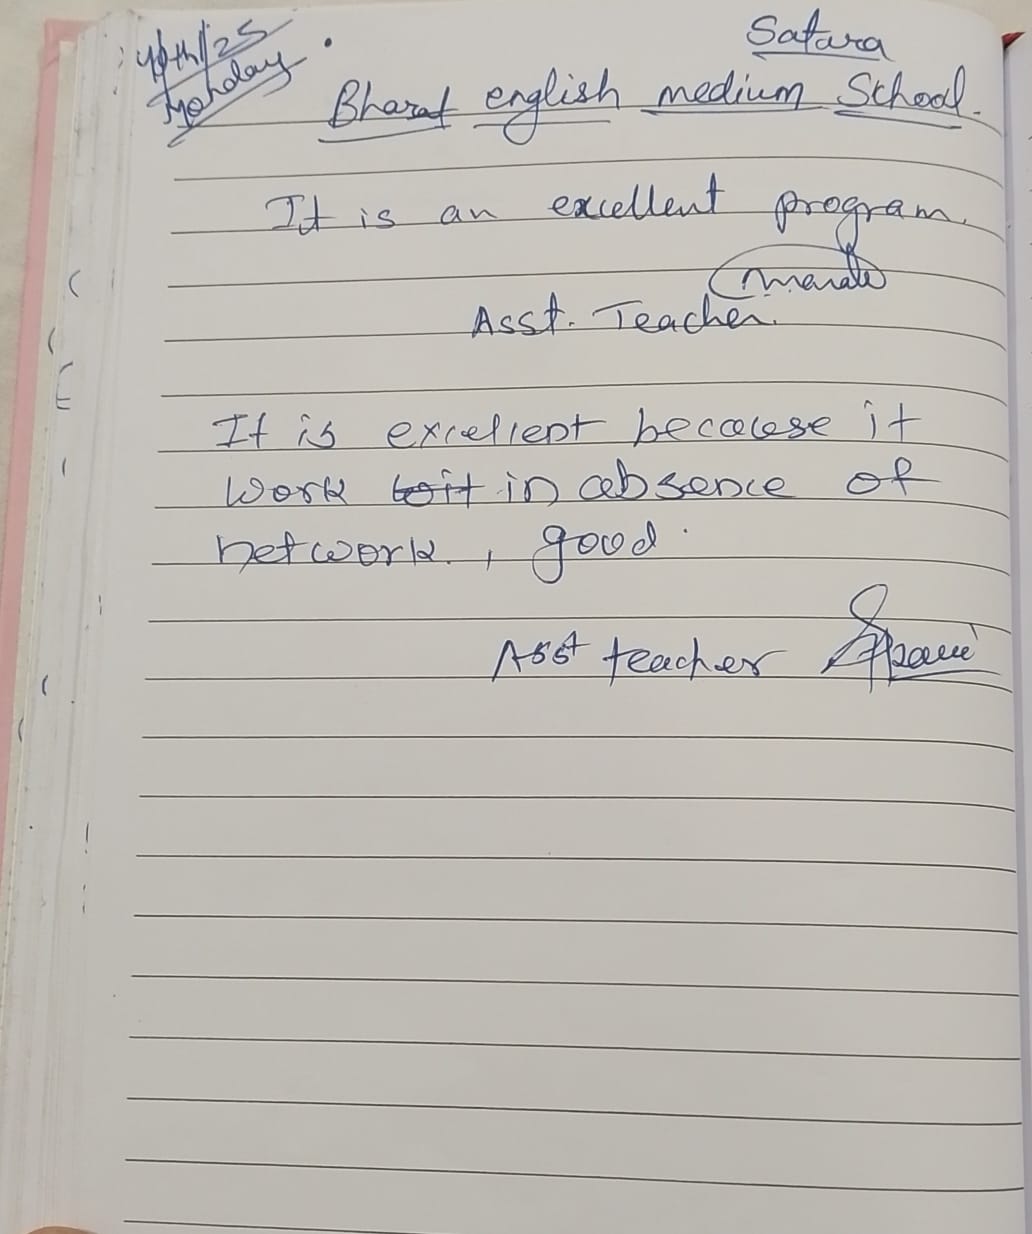 Satara
Monday
Bharat english medium School.
It is an excellent program.
Asst. Teacher.
It is excellent because it
work in absence of
network, good.
Asst teacher